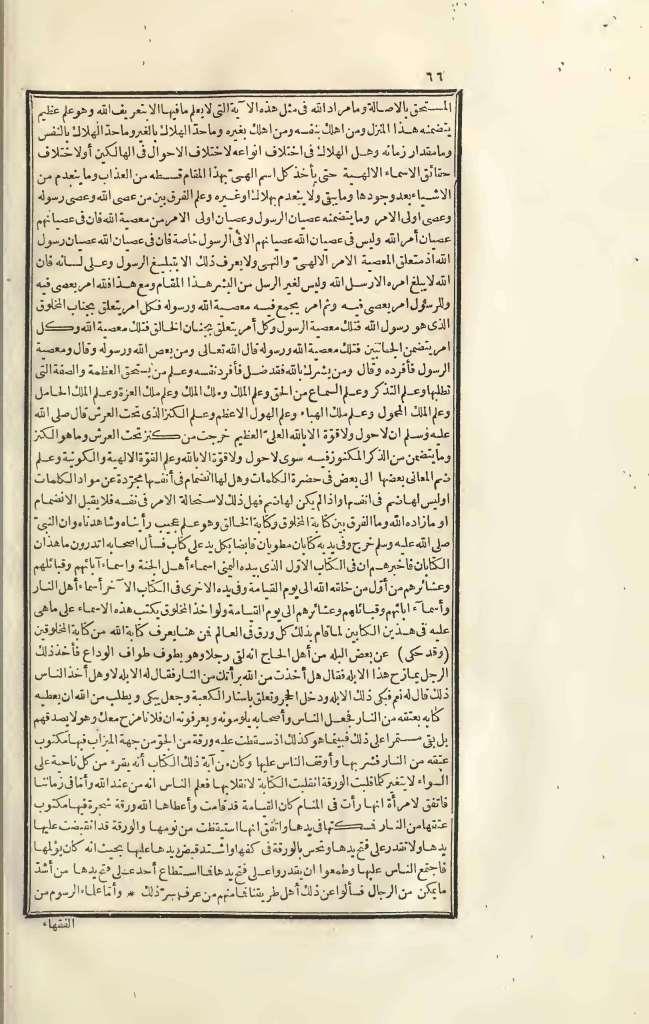 ٦٦
المستحق بالاصالة وما مراد الله فى مثل هذه الآية التى لا يعلم ما فيها الا بتعريف الله وهو علم عظيم
يتضمنه هذا المنزل ومن اهلك بنفسه ومن اهلك بغيره وما حد الهلاك بالغير وما حد الهلاك بالنفس
وما مقدار زمانه وهل الهلاك فى اختلاف انواعه لاختلاف الاحوال فى الهالكين أو لاختلاف
حقائق الاسماء الالهية حتى يأخذ كل اسم الهى بهذا المقام قسطه من العذاب وما ينعدم من
الاشياء بعد وجودها وما يبقى ولا ينعدم بهلاك أو غيره وعلم الفرق بين من عصى الله وعصى رسوله
وعصى اولى الامر وما يتضمنه عصيان الرسول وعصيان اولى الامر من معصية الله فان فى عصيانهم
عصيان أمر الله وليس فى عصيان الله عصيانهم الا فى الرسول خاصة فان فى عصيان الله عصيان رسول
الله اذ متعلق المعصية الامر الالهى والنهى ولا يعرف ذلك الا بتبليغ الرسول وعلى لسانه فان
الله لا يبلغ امره الا رسل الله وليس لغير الرسل من البشر هذا المقام ومع هذا فلله امر يعصى فيه
وللرسول امر يعصى فيه وثم امر يجمع فيه معصية الله ورسوله فكل امر يتعلق بجناب المخلوق
الذى هو رسول الله فتلك معصية الرسول وكل أمر يتعلق بجناب الخالق فتلك معصية الله وكل
امر يتضمن الجانبين فتلك معصية الله ورسوله قال الله تعالى ومن يعص الله ورسوله وقال ومعصية
الرسول فأفرده وقال ومن يشرك بالله فقد ضل فأفرد نفسه وعلم من يستحق العظمة والصفة التى
تطلبها وعلم التذكر وعلم السماع من الحق وعلم الملك وملك الملك وعلم ملك العزة وعلم الملك الحامل
وعلم الملك المحمول وعلم ملك الهباء وعلم الهول الاعظم وعلم الكنز الذى تحت العرش قال صلى الله
عليه وسلم ان لا حول ولا قوة الا بالله العلى العظيم خرجت من كنز تحت العرش وما هو الكنز
وما يتضمن من الذكر المكنوز فيه سوى لا حول ولا قوة الا بالله وعلم القوة الالهية والكونية وعلم
ضم المعانى بعضها الى بعض فى حضرة الكلمات وهل لها انضمام فى أنفسها مجردة عن مواد الكلمات
او ليس لها ضم فى انفسها واذا لم يكن لها ضم فهل ذلك لاستحالة الامر فى نفسه فلا يقبل الانضمام
او ما زاده الله وما الفرق بين كتابة المخلوق وكتابة الخالق وهو علم عجيب رأيناه وشاهدناه وان النبى
صلى الله عليه وسلم خرج وفى يديه كتابان مطويان قابضا بكل يد على كتاب فسأل اصحابه اتدرون ما هذان
الكتابان فاخبرهم ان فى الكتاب الاول الذى بيده اليمنى اسماء أهل الجنة واسماء آبائهم وقبائلهم
وعشائرهم من أول من خلقه الله الى يوم القيامة وفى يده الاخرى فى الكتاب الآخر أسماء أهل النار
وأسماء ابائهم وقبائلهم وعشائرهم الى يوم القيامة ولو اخذ المخلوق يكتب هذه الاسماء على ما هى
عليه فى هذين الكتابين لما قام بذلك كل ورق فى العالم فمن هنا يعرف كتابة الله من كتابة المخلوقين
(وقد حكى) عن بعض البله من أهل الحاج انه لقى رجلا وهو يطوف طواف الوداع فأخذ ذلك
الرجل يمازح هذا الابله فقال هل أخذت من الله براءتك من النار فقال له الابله لا وهل أخذ الناس
ذلك قال له نعم فبكى ذلك الابله ودخل الحجر وتعلق باستار الكعبة وجعل يبكى ويطلب من الله ان يعطيه
كتابه بعتقه من النار فجعل الناس وأصحابه يلومونه ويعرفونه ان فلانا مزح معك وهو لا يصدقهم
بل بقى مستمرا على ذلك فبينما هو كذلك اذ سقطت عليه ورقة من الجو من جهة الميزاب فيها مكتوب
عتقه من النار فسر بها وأوقف الناس عليها وكان من آية ذلك الكتاب أنه يقرء من كل ناحية على
السواء لا يتغير كلما قلبت الورقة انقلبت الكتابة لانقلابها فعلم الناس انه من عند الله وأما فى زماننا
فاتفق لامرأة انها رأت فى المنام كان القيامة قد قامت وأعطاها الله ورقة شجرة فيها مكتوب
عتقها من النار فمسكتها فى يدها واتفق انها استيقظت من نومها والورقة قد انقبضت عليها
يدها ولا تقدر على فتح يدها وتحس بالورقة فى كفها واشتد قبض يدها عليها بحيث انه كان يؤلمها
فاجتمع الناس عليها وطمعوا ان يقدروا على فتح يدها فما استطاع أحد على فتح يدها من أشد
ما يمكن من الرجال فسألوا عن ذلك أهل طريقنا فما منهم من عرف سر ذلك * وأما علماء الرسوم من
الفقهاء